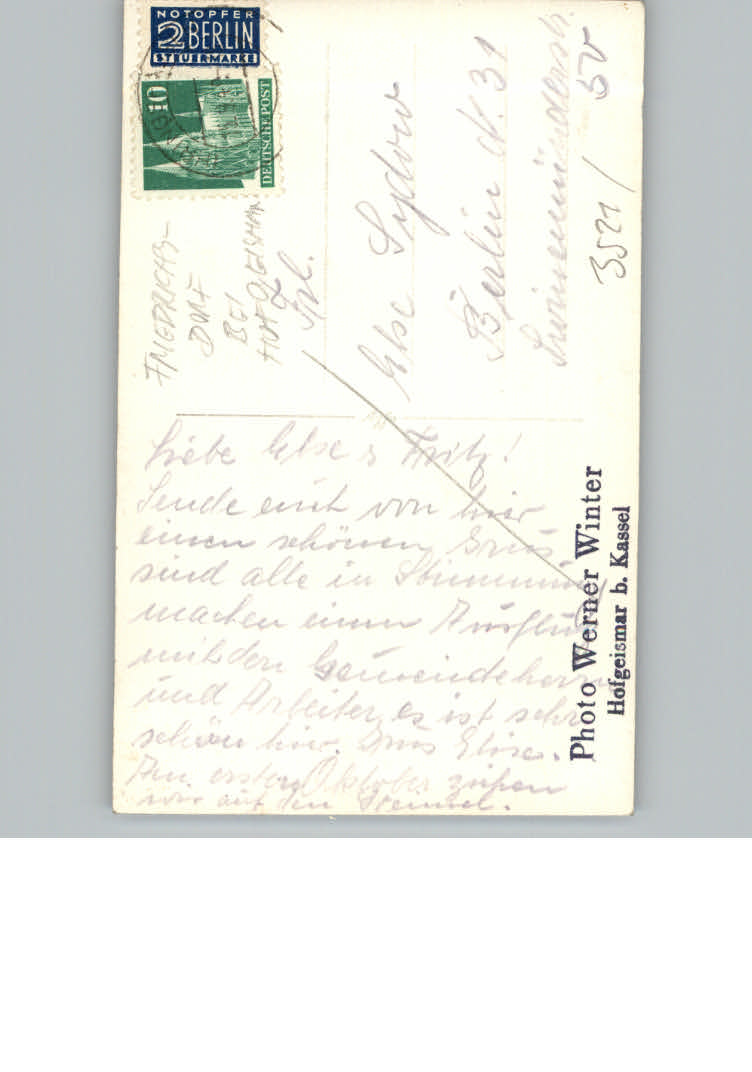 NOTOPFER
2 BERLIN
STEUERMARKE
10
DEUTSCHE POST
FRIEDRICHS-
DORF
BEI
HOFGEISMAR
Frl.
Else Sydow
Berlin N. 31
Swinemünderstr.
50
3521/
Liebe Else & Fritz!
Sende euch von hier
einen schönen Grus
sind alle in Stimmung
machen einen Ausflug
mit den Gemeindeherrn
und Arbeiter es ist sehr
schön hier. Grus Elise.
Am ersten Oktober ziehen
wir auf den
Photo Werner Winter
Hofgeismar b. Kassel